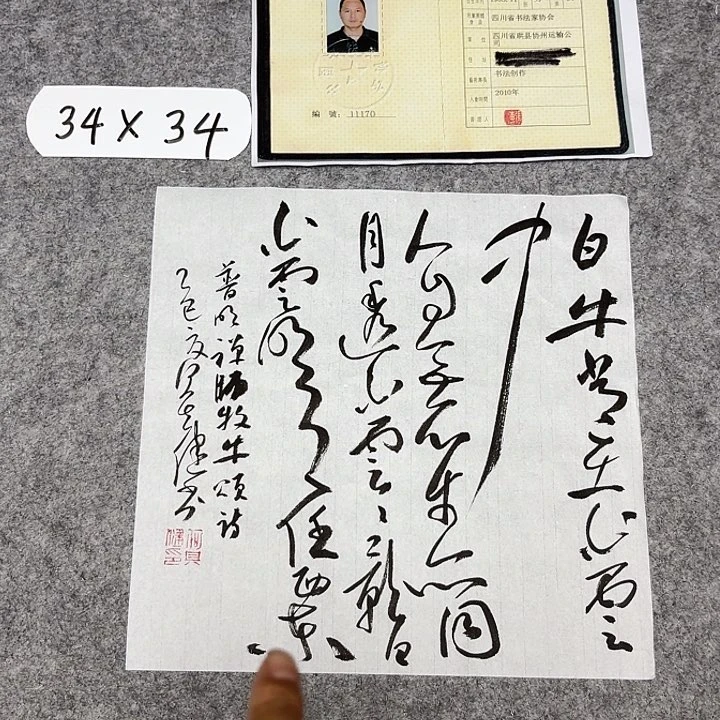 四川省书法家协会
四川省珙县协州运输公
司
书法创作
2010年
編 號: 11170
34 X 34
白牛常在白雲
中
人自無心牛亦同
月透白雲雲影白
白雲明月任西东
普明禅師牧牛颂诗
乙巳夏何其健书